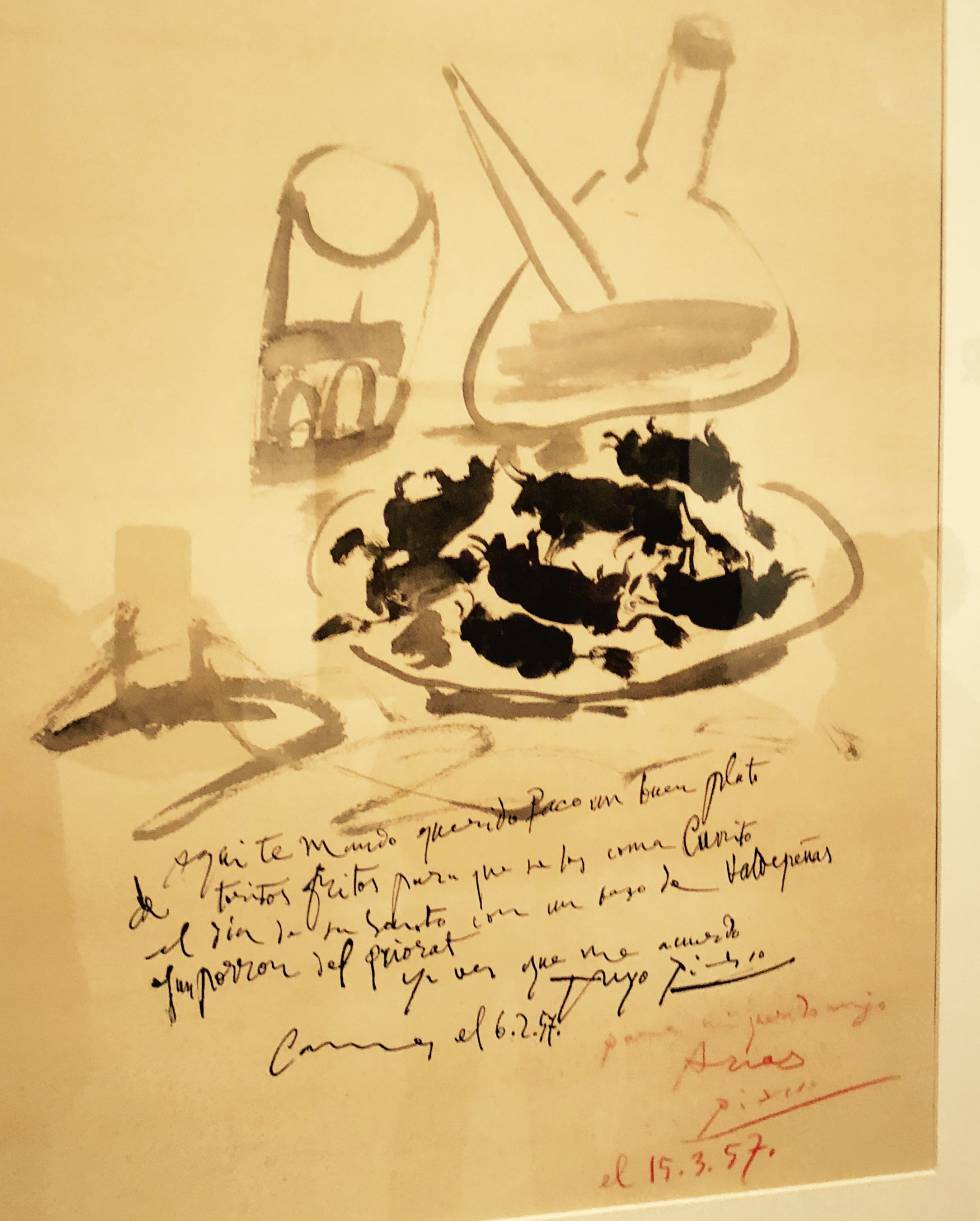 Aquí te mando querido Paco un buen plato
de toritos fritos para que se los coma Currito
el día de su Santo con un vaso de Valdepeñas
y un porron del priorat
ya ves que me acuerdo
Tuyo Picasso
Cannes el 6.2.57.
para mi querido amigo
Arias
Picasso
el 15.3.57.